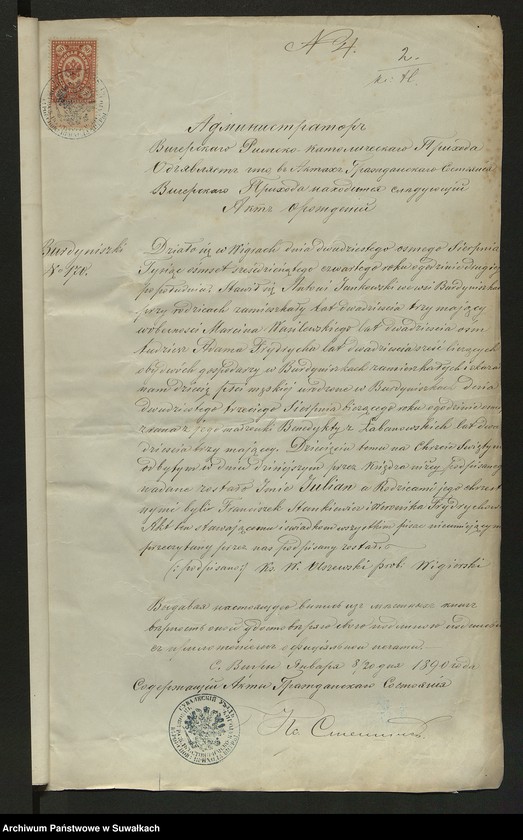 N 4.
2.
Администраторъ
Вигерскаго Римско-католическаго Прихода
Объявляетъ что въ Актахъ Гражданскаго Состоянія
Вигерскаго Прихода находится следующій
Актъ о рожденіи
Burdyniszki
No 178.
Działo się w Wigrach dnia dwudziestego osmego Sierpnia
Tysiąc osmset sześćdziesiątego czwartego roku o godzinie drugiej
popołudniu. Stawił się Antoni Jankowski we wsi Burdyniszkach
przy rodzicach zamieszkały lat dwadzieścia trzy mający
w obecności Marcina Wasilewskiego lat dwadzieścia osm
tudzież Adama Frydrycha lat dwadzieścia sześć liczących
obydwóch gospodarzy w Burdyniszkach zamieszkałych i okazał
nam dziecię płci męskiej urodzone w Burdyniszkach dnia
dwudziestego trzeciego Sierpnia bieżącego roku o godzinie
z jego małżonki Benedykty z Łabanowskich lat dwa
dzieścia trzy mającej. Dziecięciu temu na Chrzcie Świętym
odbytym w dniu dzisiejszym przez Księdza niżej podpisanego
nadane zostało Imie Julian a Rodzicami jego chrzest
nymi byli Franciszek Stankiewicz i Weronika Frydrychowa
Akt ten stawającemu i świadkom wszystkim pisać nieumiejącym
przeczytany przez nas podpisany został
(: podpisano:) Ks. W. Olszewski prob. Wigierski
Выдавая настоящую выпись изъ книгъ
верность оной удостоверяю моею подписью
съ приложеніемъ оффиціальной печати.
С. Вигры Января 8/20 дня 1890 года
Содержащій Акты Гражданскаго Состоянія
Кс.
Archiwum Państwowe w Suwałkach